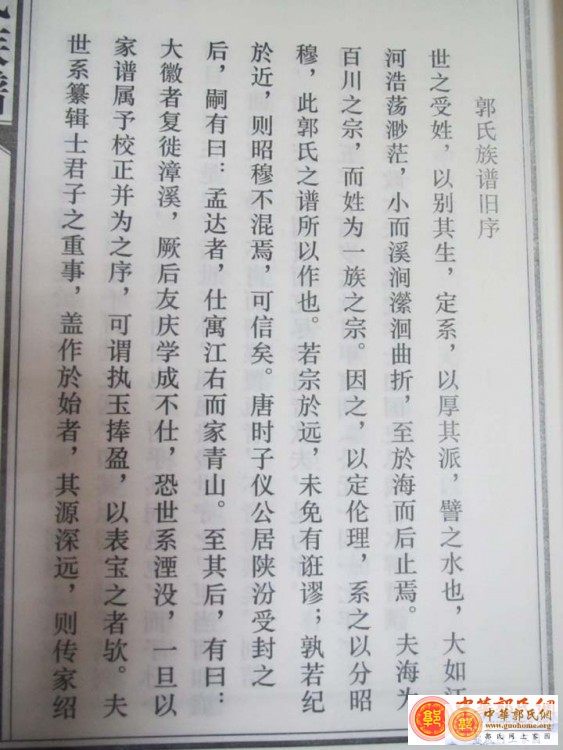 郭氏族谱旧序
世之受姓，以别其生，定系，以厚其派，譬之水也，大如江
河浩荡渺茫，小而溪涧潆洄曲折，至於海而后止焉。夫海为
百川之宗，而姓为一族之宗。因之，以定伦理，系之以分昭
穆，此郭氏之谱所以作也。若宗於远，未免有诳谬；孰若纪
於近，则昭穆不混焉，可信矣。唐时子仪公居陕汾受封之
后，嗣有曰：孟达者，仕寓江右而家青山。至其后，有曰：
大徽者复徙漳溪，厥后友庆学成不仕，恐世系湮没，一旦以
家谱属予校正并为之序，可谓执玉捧盈，以表宝之者欤。夫
世系纂辑士君子之重事，盖作於始者，其源深远，则传家绍
族谱
中华郭氏网
郭
中華郭氏網
www.guohome.org
郭氏网上家园